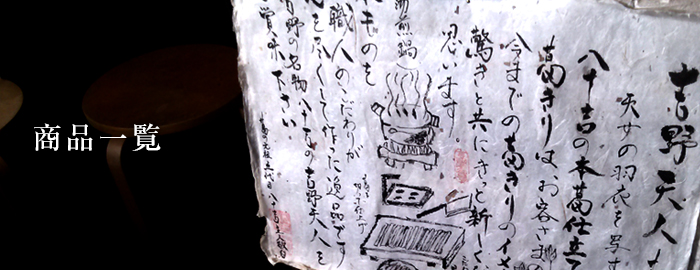 商品一覧
吉野天人
天女の羽衣を
八十吉の本葛仕立て
葛きりは、お客さま
今までの葛きりのイメ
驚きと共にきっと新しく
思います。
煎鍋)
ものを
職人のこだわりが
尽くして作った逸品です
吉野の名物八十吉の吉野天人を
賞味下さい